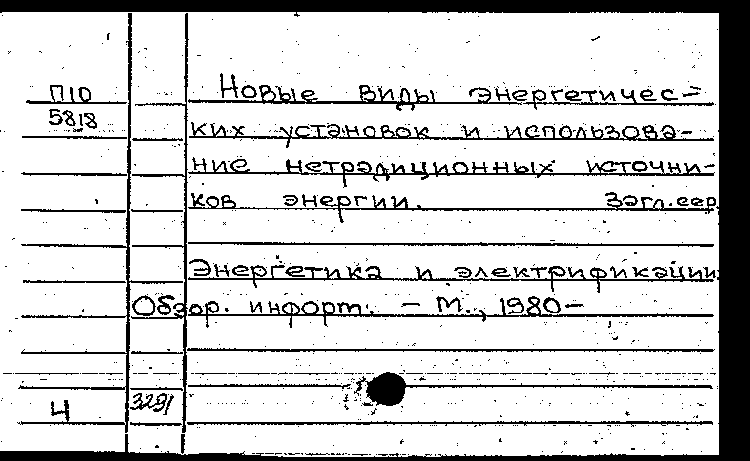 П10
5818
Новые виды энергетичес-
ких установок и использова-
ние нетрадиционных источни-
ков энергии. Загл.сер.
Энергетика и электрификации
Обзор. информ. – М., 1980–
4 3291